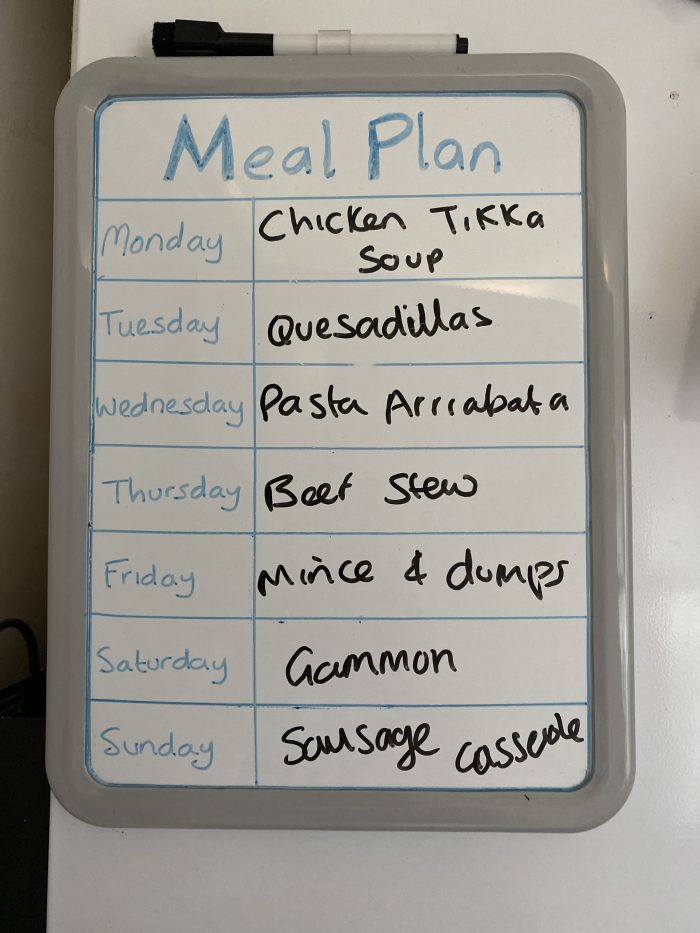 Meal Plan
Monday
Chicken Tikka
Soup
Tuesday
Quesadillas
Wednesday
Pasta Arriabata
Thursday
Beef Stew
Friday
Mince & dumps
Saturday
Gammon
Sunday
Sausage casserole